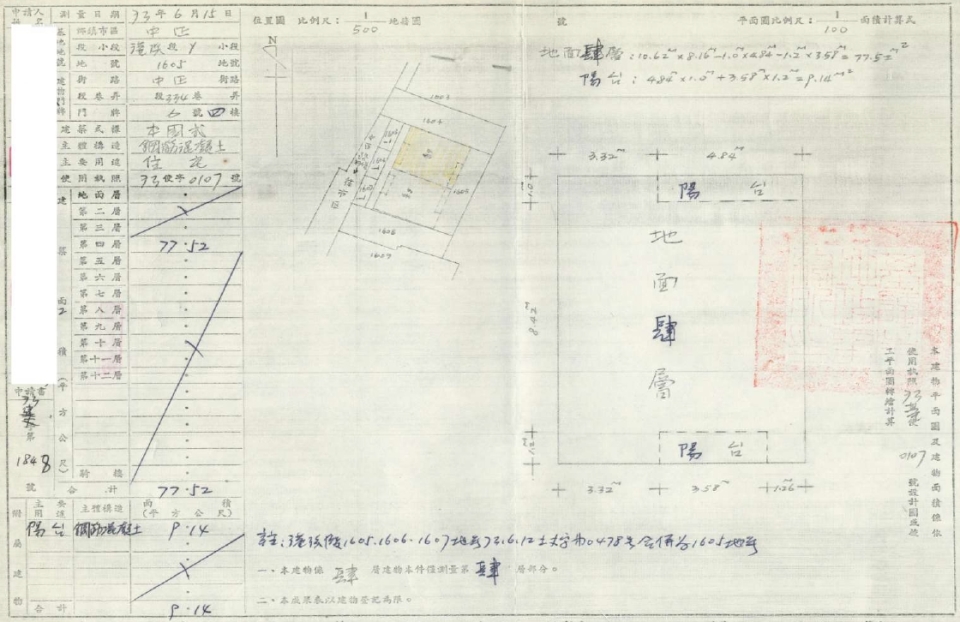 申請人
測量日期 73年6月15日
鄉鎮市區 中正
段 小段 段 小段
地號 1605 地號
街路 中正 街路
段巷弄 段354巷 弄
門牌 6 號四樓
建築式樣 本國式
主體構造 鋼筋混凝土
主要用途 住宅
使用執照 73使字0107號
建築面積(平方公尺)
地面層
第二層
第三層
第四層 77.52
第五層
第六層
第七層
第八層
第九層
第十層
第十一層
第十二層
騎樓
合計 77.52
申請書
73
字第
1848
號
附屬建物
主要用途 主體構造 面積(平方公尺)
陽台 鋼筋混凝土 9.14
合計 9.14
位置圖 比例尺：1/500 地積圖
號
平面圖比例尺：1/100 面積計算式
地面肆層：10.62×8.16-1.0×4.84-1.2×3.58=77.52
陽台：4.84×1.0+3.58×1.2=9.14
N
1003
1604
1606
1607
3.32 4.84
1.0
陽台
地
面
肆
層
8.42
陽台
3.32 3.58 1.26
本建物平面圖及建物面積係依
使用執照73 使 0107 號設計圖
二平面圖轉繪計算
註：港 段 1605.1606.1607地號73.6.12 字第0478號合併為1605地號
一、本建物係肆層建物本件僅測量第肆層部分。
二、本成果表以建物登記為限。